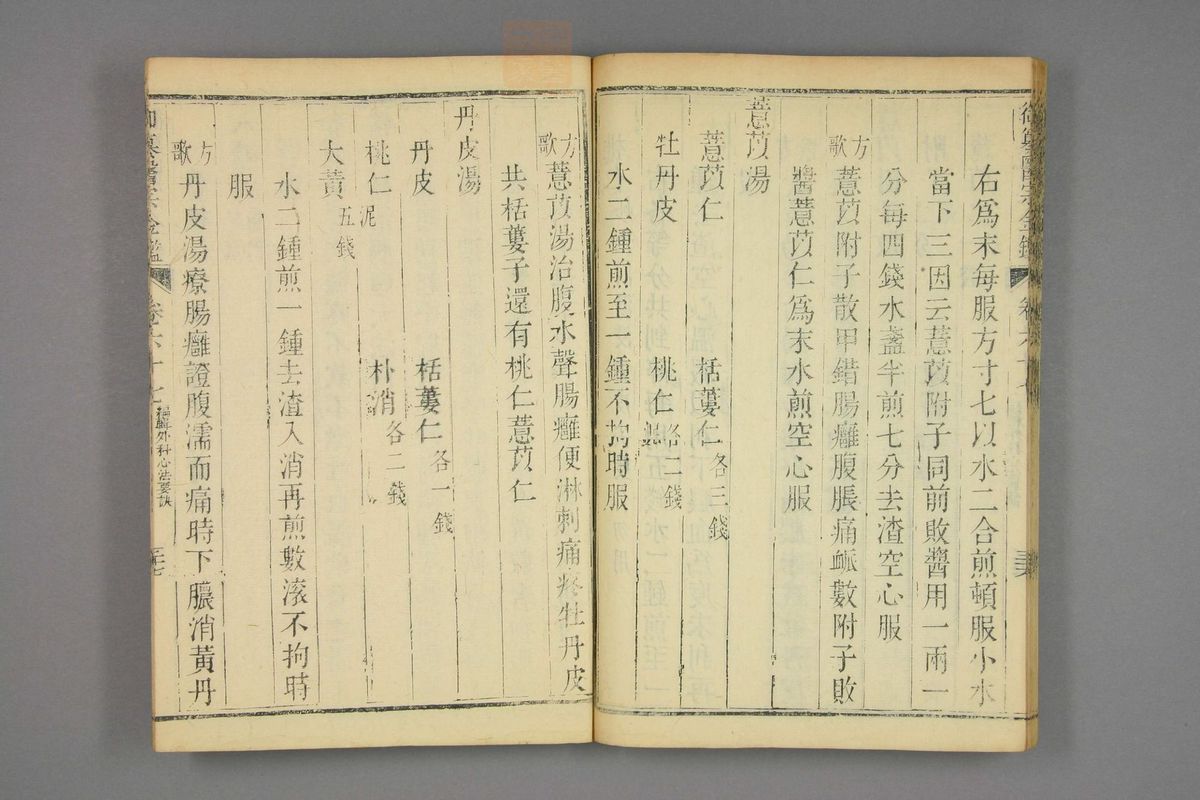 右爲末每服方寸七以水二合煎頓服小水
當下三因云薏苡附子同前敗醬用一兩一
分每四錢水盞半煎七分去渣空心服
方歌 薏苡附子散甲錯腸癰腹脹痛衇數附子敗
醬薏苡仁爲末水煎空心服
薏苡湯
薏苡仁 栝蔞仁各三錢
牡丹皮 桃仁各二錢
水二鍾煎至一鍾不拘時服
方歌 薏苡湯治腹水聲腸癰便淋刺痛疼牡丹皮
共栝蔞子還有桃仁薏苡仁
丹皮湯
丹皮 栝蔞仁各一錢
桃仁泥 朴消各二錢
大黃五錢
水二鍾煎一鍾去渣入消再煎數滾不拘時
服
方歌 丹皮湯療腸癰證腹濡而痛時下膿消黃丹
卷六十七 編輯外科心法要訣 三十七